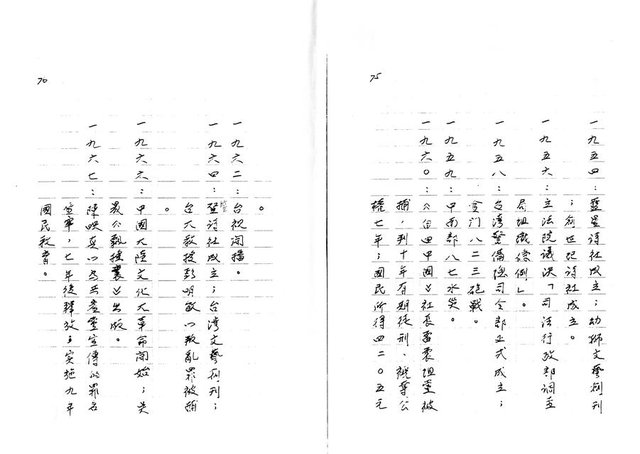 75
一九五四：藍星詩社成立；幼獅文藝創刊
；創世紀詩社成立。
一九五六：立法院議決「司法行政部調查
局組織條例」。
一九五八：台灣警備總司令部正式成立；
金門八二三砲戰。
一九五九：中南部八七水災。
一九六〇：《自由中國》社長雷震組黨被
捕，判十年有期徒刑，褫奪公
權七年；國民所得四二〇五元
。
70
一九六二：台視開播。
一九六四：笠詩社成立；台灣文藝創刊；
台大教授彭明敏以叛亂罪被捕
。
一九六六：中國大陸文化大革命開始；
裁》出版。
一九六七：陳映真以為共產黨宣傳的罪名
，七年後釋放；實施九年
國民教育。